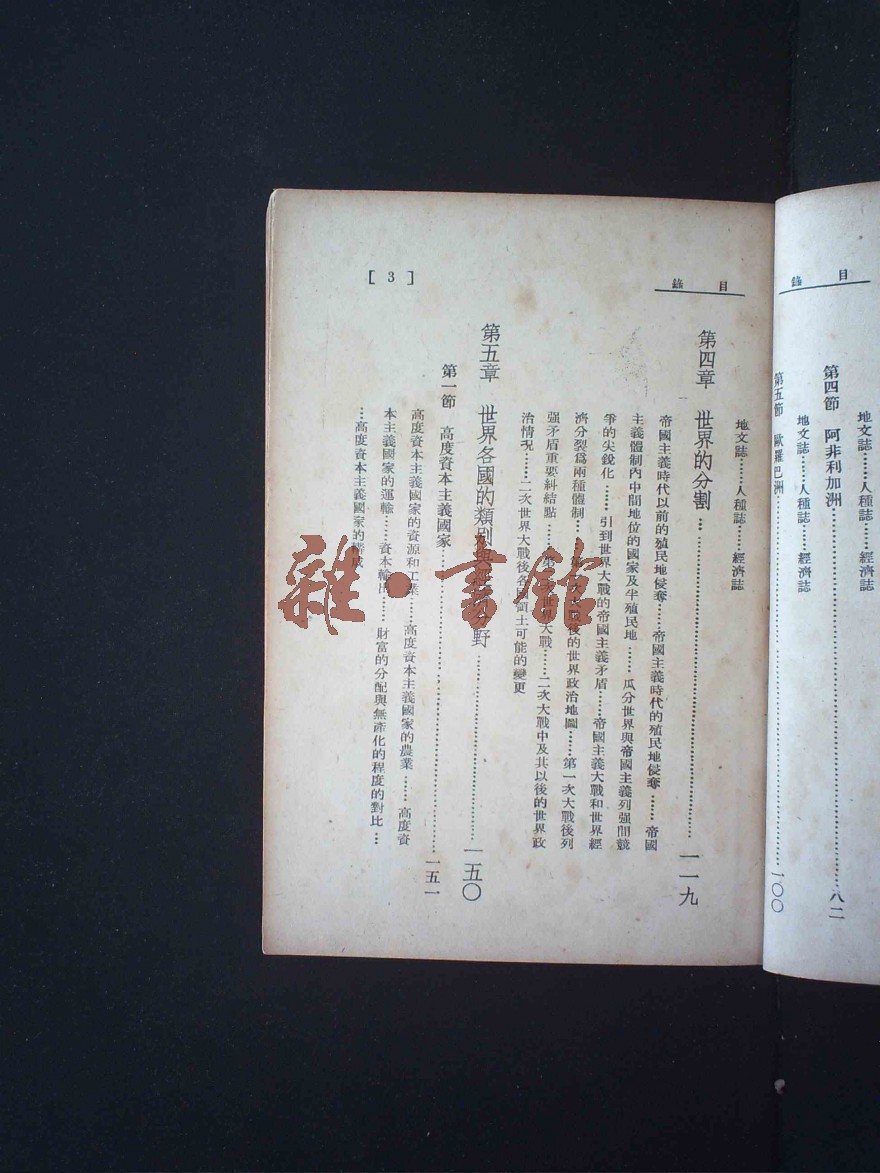 目錄
地文誌……人種誌……經濟誌
第四節 阿非利加洲……八二
地文誌……人種誌……經濟誌
第五節 歐羅巴洲……一〇〇
目錄
[ 3 ]
地文誌……人種誌……經濟誌
第四章 世界的分割……一一九
帝國主義時代以前的殖民地侵奪……帝國主義時代的殖民地侵奪……帝國
主義體制內中間地位的國家及半殖民地……瓜分世界與帝國主義列强間競
爭的尖銳化……引到世界大戰的帝國主義矛盾……帝國主義大戰和世界經
濟分裂爲兩種體制……大戰後的世界政治地圖……第一次大戰後列
强矛盾重要糾結點……世界大戰……二次大戰中及其以後的世界政
治情况……二次世界大戰後各國領土可能的變更
第五章 世界各國的類別與分野……一五〇
第一節 高度資本主義國家……一五一
高度資本主義國家的資源和工業……高度資本主義國家的農業……高度資
本主義國家的運輸……資本輸出……財富的分配與無產化的程度的對比…
…高度資本主義國家的構成
雜·書館